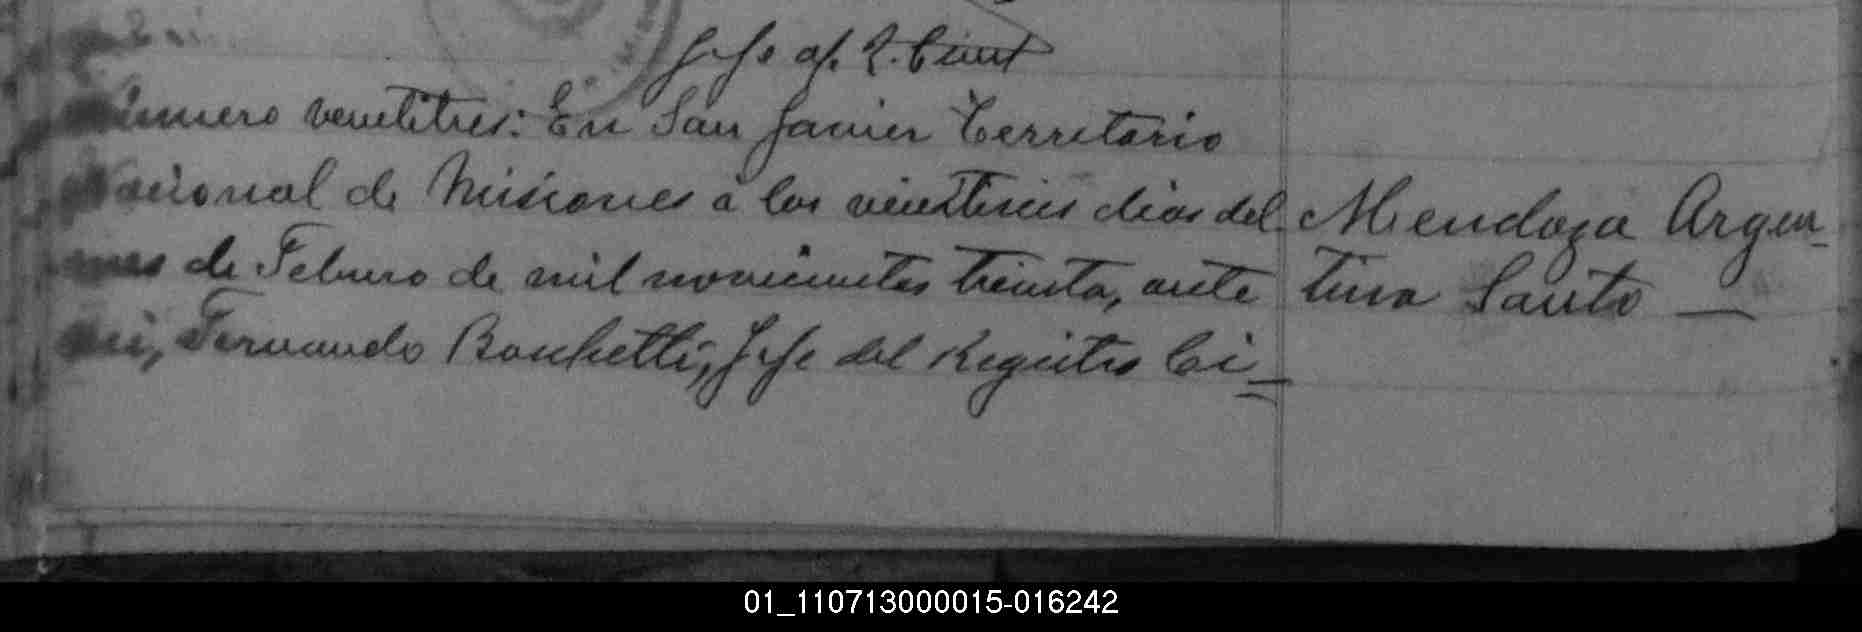 Jefe of. R. Civil
Número veintitres: En San Javier Territorio
Nacional de Misiones á los veintiseis dias del
mes de Febrero de mil novecientos treinta, ante
mi, Fernando Bonketti, Jefe del Registro Ci=
Mendoza Argen-
tina Santo —
01_110713000015-016242